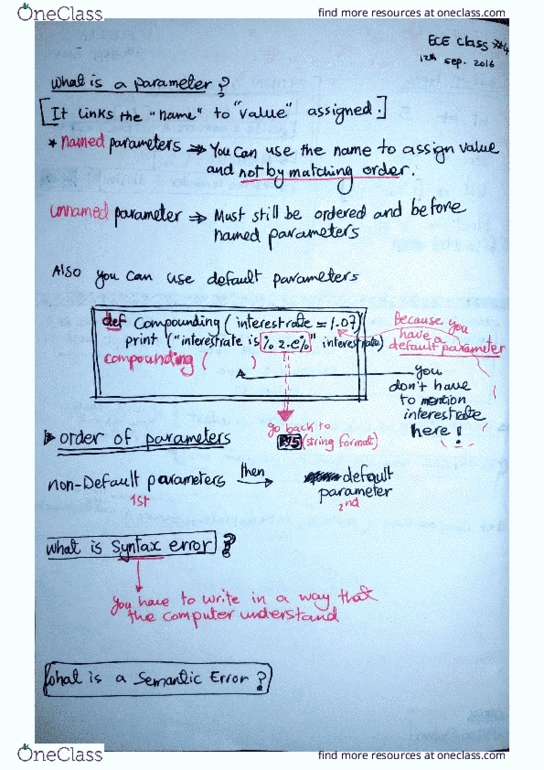 OneClass
find more resources at oneclass.com
ECE Class #4
12th Sep. 2016
What is a parameter?
[It links the "name" to "value" assigned.]
* Named parameters ⇒ You can use the name to assign value
and not by matching order.
unnamed parameter ⇒ Must still be ordered and before
named parameters
Also you can use default parameters
def Compounding (interestrate = 1.07)
print ("interestrate is %2.e%" interestrate)
compounding ( )
Because you
have a
default parameter
you
don't have
to mention
interestrate
here!
go back to
(string format)
order of parameters
non-Default parameters then → default
parameter
1st
2nd
What is Syntax error?
you have to write in a way that
the computer understand
What is a Semantic Error?
OneClass
find more resources at oneclass.com